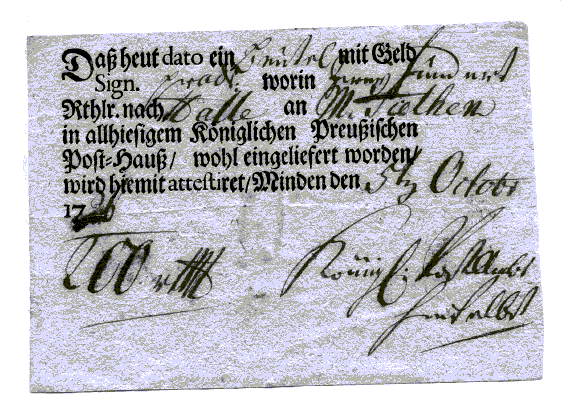 Daß heut dato ein Beutel mit Geld
Sign. worin Hundert
Rthlr. nach Halle an
in allhiesigem Königlichen Preußischen
Post-Hauß/ wohl eingeliefert worden/
wird hiemit attestiret/Minden den 5 Octobr
17
Königl. Postambt
hieselbst